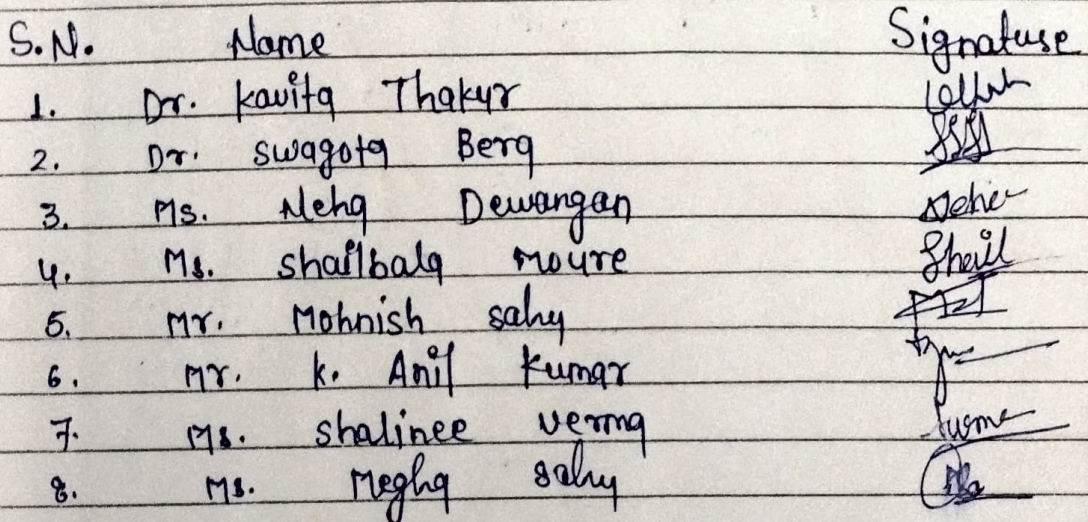 S.N. Name Signature
1. Dr. Kavita Thakur
2. Dr. Swagota Bera
3. Ms. Neha Dewangan Neha
4. Ms. Shailbala Moure Shail
5. Mr. Mohnish Sahu
6. Mr. K. Anil Kumar
7. Ms. Shalinee Verma
8. Ms. Megha Sahu